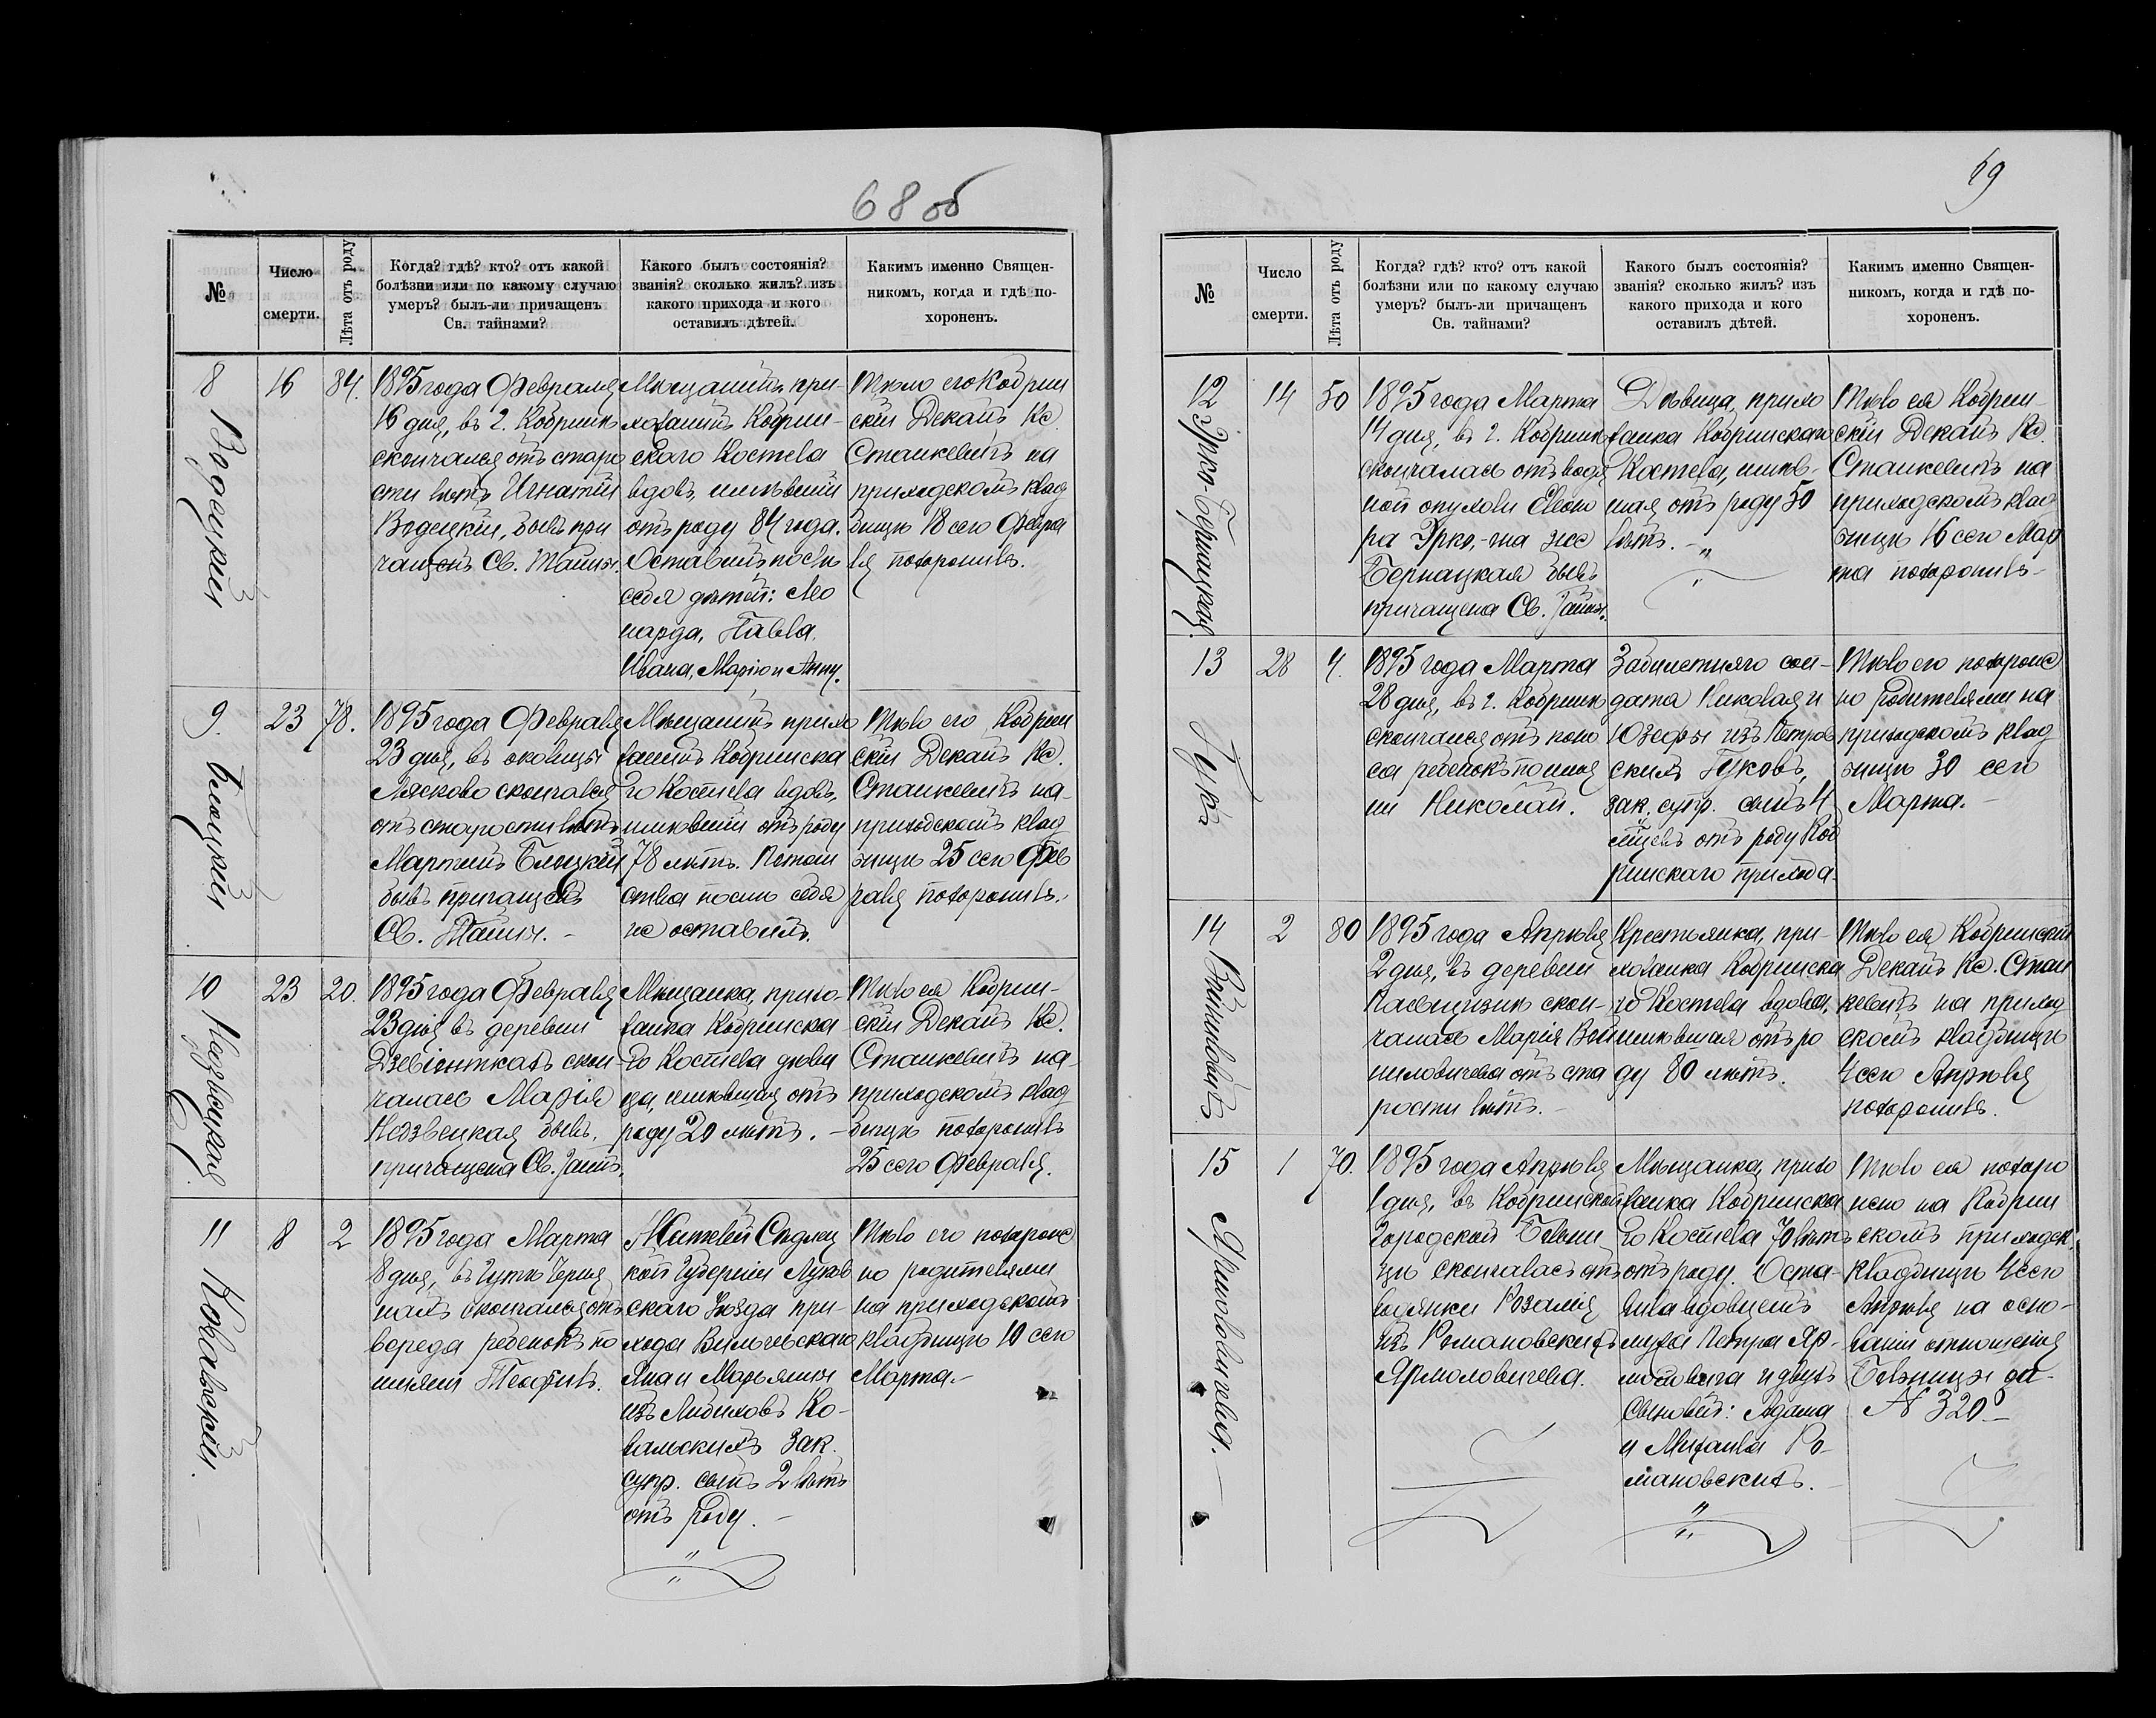 68 об
№
Число
смерти.
Лѣта отъ роду
Когда? гдѣ? кто? отъ какой
болѣзни или по какому случаю
умеръ? былъ-ли причащенъ
Св. тайнами?
Какого былъ состоянія?
званія? сколько жилъ? изъ
какого прихода и кого
оставилъ дѣтей.
Какимъ именно Священ-
никомъ, когда и гдѣ по-
хороненъ.
8
Водецкій
16
84.
1895 года Февраля
16 дня, въ г. Кобринѣ
скончался отъ старо
сти лѣтъ Игнатій
Водецкій, бывъ при
чащенъ Св. Тайны.
Мѣщанинъ при-
хожанинъ Кобрин-
скаго Костела
вдовъ, имѣвшій
отъ роду 84 года.
Оставилъ послѣ
себя дѣтей: Ме
нарда, Павла,
Ивана, Марію и Анну.
Тѣло его Кобрин
скій Деканъ Кс.
Станкевичъ на
приходскомъ клад
бищѣ 18 сего Февра
ля похоронилъ.
9.
Блоцкій
23
78.
1895 года Февраля
23 дня, въ околицѣ
Лясково скончался
отъ старости лѣтъ
Мартинъ Блоцкій
бывъ причащенъ
Св. Тайны. -
Мѣщанинъ прихо
жанинъ Кобринска
го Костела вдовъ,
имѣвшій отъ роду
78 лѣтъ. Потом
ства послѣ себя
не оставилъ.
Тѣло его Кобрин
скій Деканъ Кс.
Станкевичъ на
приходскомъ клад
бищѣ 25 сего Фев
раля похоронилъ.
10
Недзвецкая
23
20.
1895 года Февраля
23 дня въ деревни
скон-
чалась Марія
Недзвецкая бывъ
причащена Св. Тайнъ.
Мѣщанка, прихо-
жанка Кобринска
го Костела дѣви
ца, имѣвшая отъ
роду 20 лѣтъ. -
Тѣло ея Кобрин-
скій Деканъ Кс.
Станкевичъ на
приходскомъ клад
бищѣ похоронилъ
25 сего Февраля.
11
Ковальскій.
8
2
1895 года Марта
8 дня, въ
скончался отъ
вереда ребенокъ по
имени Теофилъ.
Жителей Сѣдлец
кой Губерніи Луков
скаго Уѣзда при-
хода
Яна и Марьянны
изъ Ко-
вальскихъ Зак.
супр. сынъ 2 лѣтъ
отъ роду. -
Тѣло его похороне
но родителями
на приходскомъ
кладбищѣ 10 сего
Марта. -
69
№
Число
смерти.
Лѣта отъ роду
Когда? гдѣ? кто? отъ какой
болѣзни или по какому случаю
умеръ? былъ-ли причащенъ
Св. тайнами?
Какого былъ состоянія?
званія? сколько жилъ? изъ
какого прихода и кого
оставилъ дѣтей.
Какимъ именно Священ-
никомъ, когда и гдѣ по-
хороненъ.
12
Эрко-Бернацкая.
14
50
1895 года Марта
14 дня, въ г. Кобринѣ
скончалась отъ водя
ной опухоли Елеоно
ра Эрко, -на же
Бернацкая бывъ
причащена Св. Тайны.
Дѣвица, прихо
жанка Кобринскаго
Костела, имѣв-
шая отъ роду 50
лѣтъ. -
Тѣло ея Кобрин-
скій Деканъ Кс.
Станкевичъ на
приходскомъ клад
бищѣ 16 сего Мар
та похоронилъ -
13
Гукъ
28
4.
1895 года Марта
28 дня, въ г. Кобринѣ
скончался отъ коко
са ребенокъ по име
ни Николай.
Забилетняго сол-
дата Николая и
Юзефы изъ Петров
скихъ Гуковъ,
зак. супр. сынъ 4
мѣсяцевъ отъ роду Коб
ринскаго прихода.
Тѣло его похороне
но родителями на
приходскомъ клад
бищѣ 30 сего
Марта. -
14
Войниловичъ
2
80
1895 года Апрѣля
2 дня, въ деревни
скон-
чалась Марія Вой
ниловичева отъ ста
рости лѣтъ. -
Крестьянка, при-
хожанка Кобринска
го Костела вдова,
имѣвшая отъ ро
ду 80 лѣтъ.
Тѣло ея Кобринскій
Деканъ Кс. Стан
кевичъ на приход
скомъ кладбищѣ
4 сего Апрѣля
похоронилъ.
15
Ярмоловичева. -
1
70.
1895 года Апрѣля
1 дня, въ Кобринской
Городской Больни
цѣ скончалась отъ
водянки Розалія
изъ Романовскихъ
Ярмоловичева.
Мѣщанка, прихо
жанка Кобринска
го Костела 70 лѣтъ
отъ роду. Оста-
вила вдовцемъ
мужа Петра Яр-
моловича и двухъ
Сыновей: Адама
и Михаила Ро-
мановскихъ.
Тѣло ея похоро
нено на Кобрин
скомъ приходск.
кладбищѣ 4 сего
Апрѣля на осно-
ваніи отношенія
Больницы за
№ 320. -